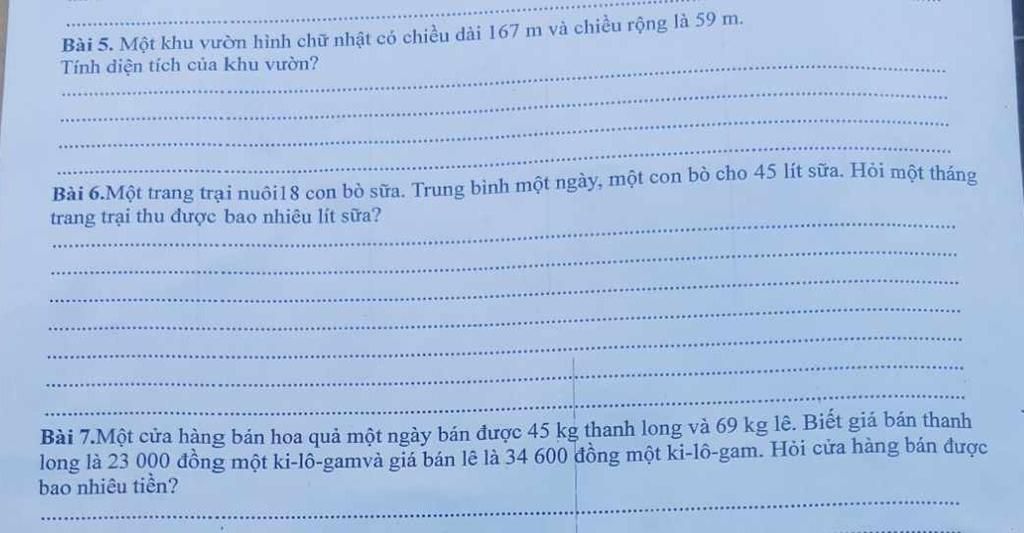 Bài 5. Một khu vườn hình chữ nhật có chiều dài 167 m và chiều rộng là 59 m.
Tính diện tích của khu vườn?
Bài 6.Một trang trại nuôi18 con bò sữa. Trung bình một ngày, một con bò cho 45 lít sữa. Hỏi một tháng
trang trại thu được bao nhiêu lít sữa?
Bài 7.Một cửa hàng bán hoa quả một ngày bán được 45 kg thanh long và 69 kg lê. Biết giá bán thanh
long là 23 000 đồng một ki-lô-gamvà giá bán lê là 34 600 đồng một ki-lô-gam. Hỏi cửa hàng bán được
bao nhiêu tiền?